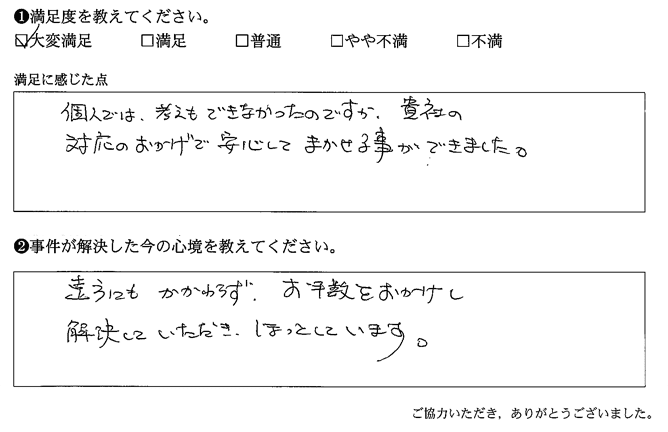 ❶満足度を教えてください。
☑大変満足 □満足 □普通 □やや不満 □不満
満足に感じた点
個人では、考えも できなかったのですが、貴社の
対応のおかげで 安心して まかせる事が できました。
❷事件が解決した今の心境を教えてください。
遠方にも かかわらず、お手数をおかけし
解決して いただき、ほっとしています。
ご協力いただき，ありがとうございました。